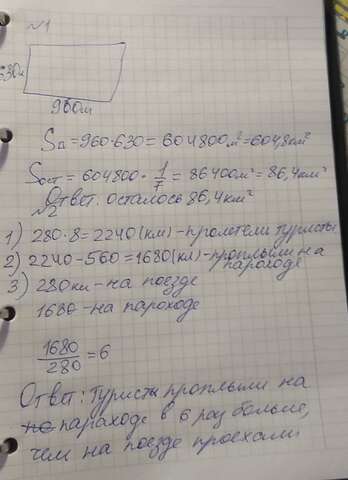 №1
630м
960м
S□=960·630=604800м²=604,8км²
Sост=604800·1/7=86400м²=86,4км²
Ответ: осталось 86,4км²
№2
1) 280·8=2240(км)-пролетели туристы
2) 2240-560=1680(км)-проплыли на
пароходе
3) 280км-на поезде
1680-на пароходе
1680/280=6
Ответ: туристы проплыли на
по параходе в 6 раз больше,
чем на поезде проехали